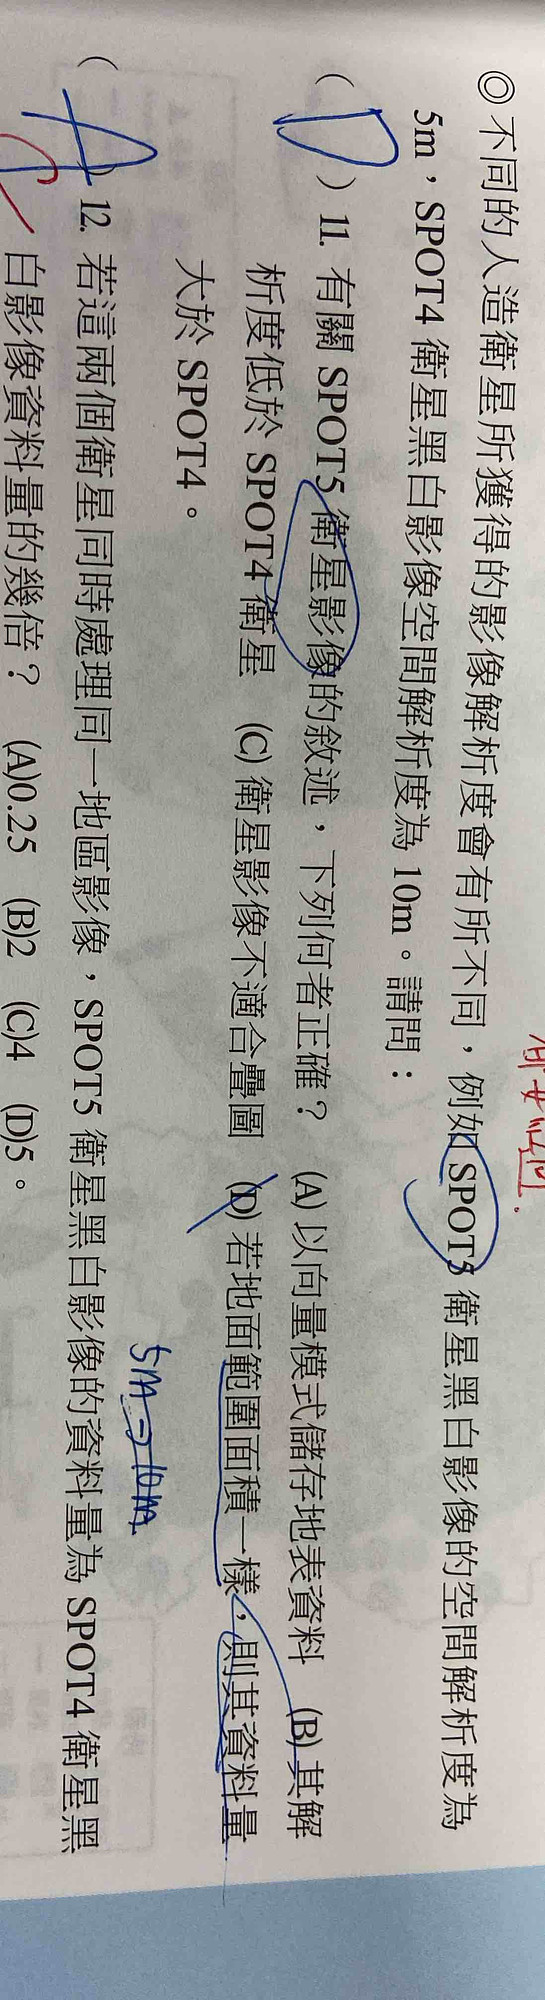 ◎不同的人造衛星所獲得的影像解析度會有所不同,例如 SPOT5 衛星黑白影像的空間解析度為
5m,SPOT4 衛星黑白影像空間解析度為 10m。請問:
( D ) 11. 有關 SPOT5 衛星影像的敘述,下列何者正確? (A) 以向量模式儲存地表資料 (B) 其解
析度低於 SPOT4 衛星 (C) 衛星影像不適合疊圖 (D) 若地面範圍面積一樣,則其資料量
大於 SPOT4。
5m → 10m
( A ) 12. 若這兩個衛星同時處理同一地區影像,SPOT5 衛星黑白影像的資料量為 SPOT4 衛星黑
白影像資料量的幾倍? (A)0.25 (B)2 (C)4 (D)5。
C